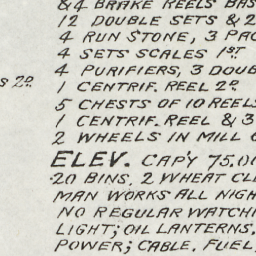 & 4 BRAKE REELS BAS
12 DOUBLE SETS & 2
4 RUN STONE, 3 PAC
4 SETS SCALES 1ST
S 2D
4 PURIFIERS, 3 DOUB
1 CENTRIF. REEL 2D
5 CHESTS OF 10 REELS
1 CENTRIF. REEL & 3
2 WHEELS IN MILL
ELEV. CAP'Y 75.0
20 BINS, 2 WHEAT CL
MAN WORKS ALL NIGH
NO REGULAR WATCH
LIGHT; OIL LANTERNS,
POWER; CABLE, FUEL